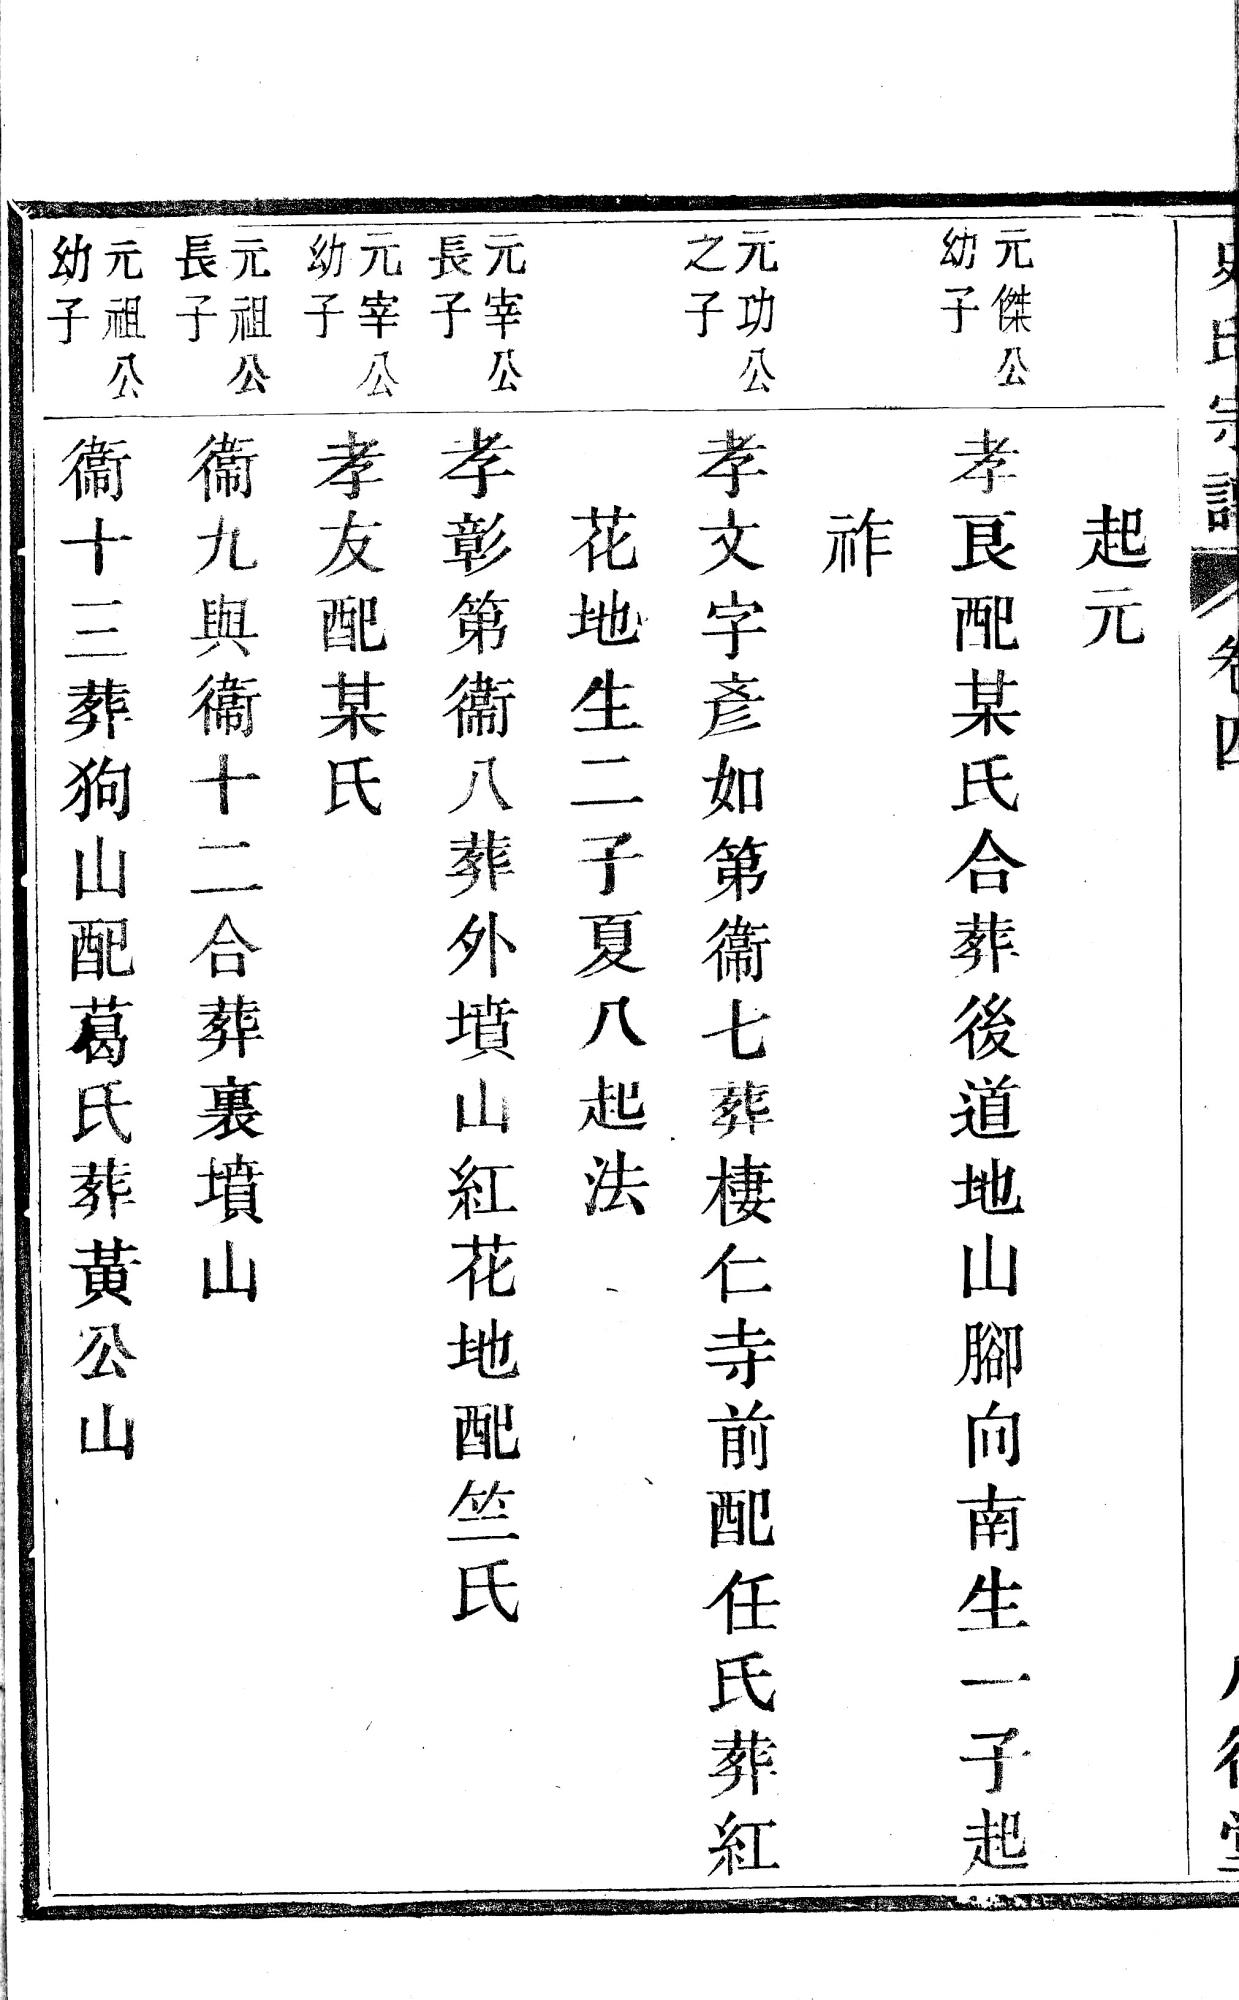 史氏宗譜 卷四 八行堂
起元
元傑公
幼子
孝良配某氏合葬後道地山腳向南生一子起
祚
元功公
之子
孝文字彥如第衞七葬棲仁寺前配任氏葬紅
花地生二子夏八起法
元宰公
長子
孝彰第衞八葬外墳山紅花地配竺氏
元宰公
幼子
孝友配某氏
元祖公
長子
衞九與衞十二合葬裏墳山
元祖公
幼子
衞十三葬狗山配葛氏葬黃公山